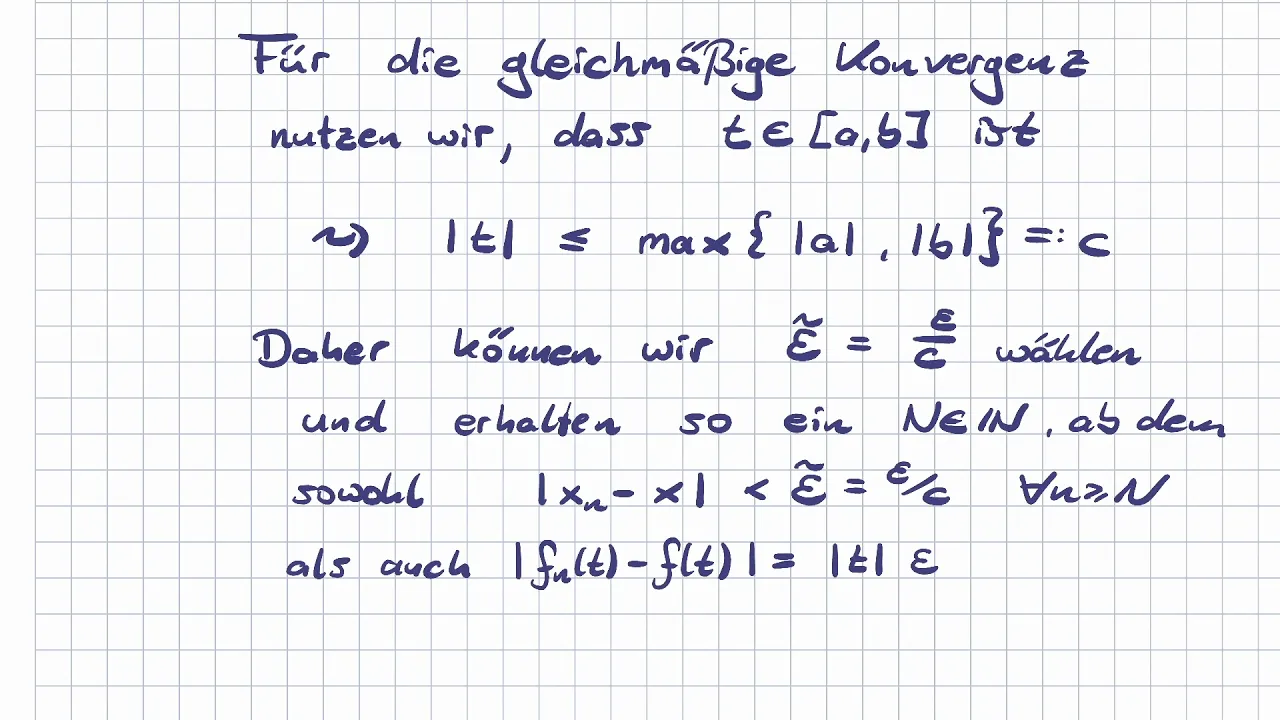 Für die gleichmäßige Konvergenz
nutzen wir, dass t ∈ [a,b] ist
⇝ |t| ≤ max{ |a| , |b| } =: c
Daher können wir ε̃ = ε/c wählen
und erhalten so ein N∈ℕ, ab dem
sowohl |xₙ - x| < ε̃ = ε/c ∀n≥N
als auch |fₙ(t) - f(t)| = |t| ε